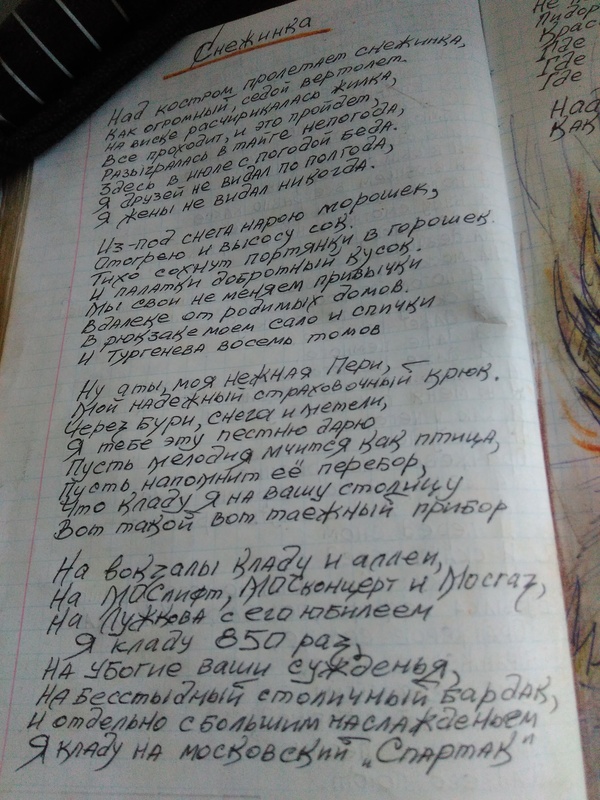 Снежинка
Над костром пролетает снежинка,
Как огромный, седой вертолет.
На виске расчирикалась жилка,
Все проходит, и это пройдет,
Разыгралась в тайге непогода,
Здесь в июле с погодой беда.
Я друзей не видал по полгода,
Я жены не видал никогда.
Из-под снега нарою морошек,
Отогрею и высосу сок.
Тихо сохнут портянки в горошек
И палатки добротный кусок.
Мы свои не меняем привычки
Вдалеке от родимых домов.
В рюкзаке моем сало и спички
И Тургенева восемь томов
Ну а ты, моя нежная Пери,
Мой надежный страховочный крюк.
Через Бури, снега и метели,
Я тебе эту пестню дарю
Пусть мелодия мчится как птица,
Пусть напомнит её перебор,
Что кладу я на вашу столицу
Вот такой вот таежный прибор
На вокзалы кладу и аллеи,
На МОСлифт, МОСконцерт и Мосгаз,
На Лужкова с его юбилеем
Я кладу 850 раз,
На убогие ваши сужденья,
На бесстыдный столичный Бардак,
И отдельно с большим наслажденьем
Я кладу на московский „Спартак"
Где
Где
Где
Над
Как